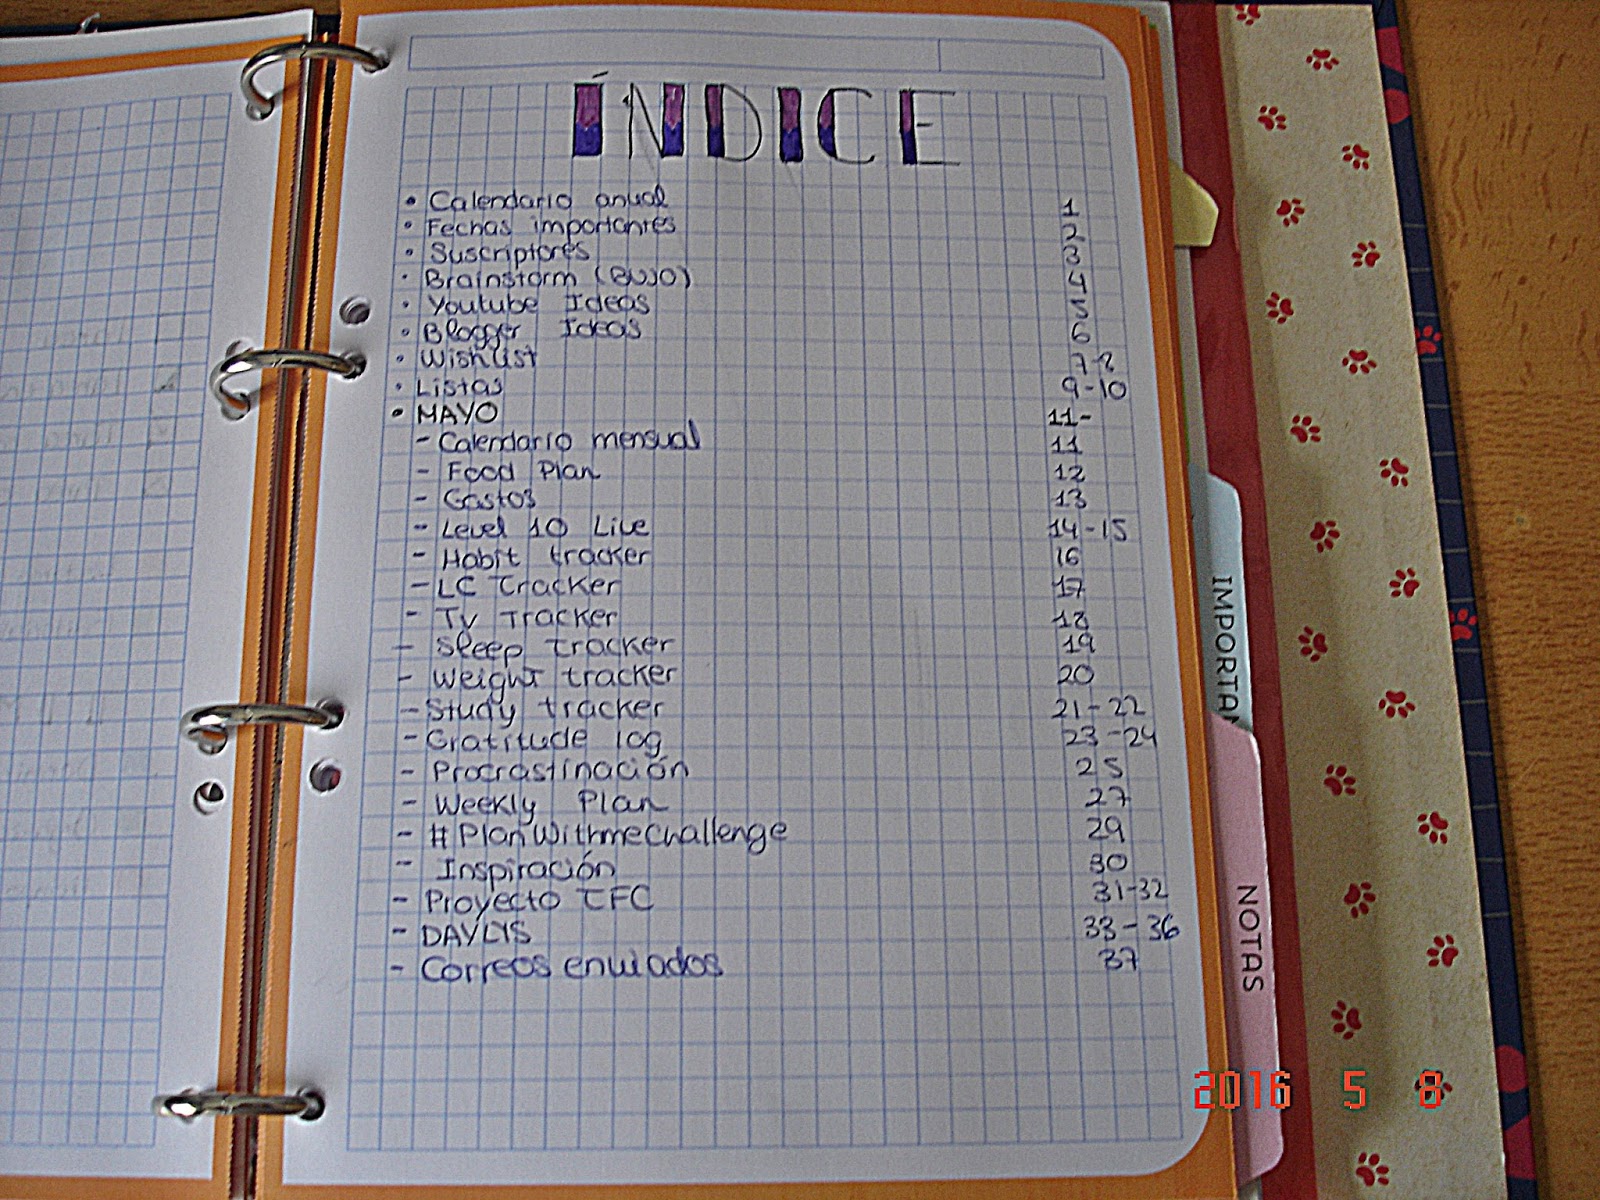 ÍNDICE
• Calendario anual 1
• Fechas importantes 2
• Suscriptores 3
• Brainstorm (BUJO) 4
• Youtube Ideas 5
• Blogger Ideas 6
• Wishlist 7-8
• Listas 9-10
• MAYO 11-
- Calendario mensual 11
- Food Plan 12
- Gastos 13
- Level 10 Live 14-15
- Habit tracker 16
- LC Tracker 17
- TV Tracker 18
- Sleep tracker 19
- Weight tracker 20
- Study tracker 21-22
- Gratitude log 23-24
- Procrastinación 25
- Weekly Plan 27
- #PlanWithmechallenge 29
- Inspiración 30
- Proyecto TFC 31-32
- DAYLYS 33-36
- Correos enviados 37
IMPORTAN
NOTAS
2016 5 8